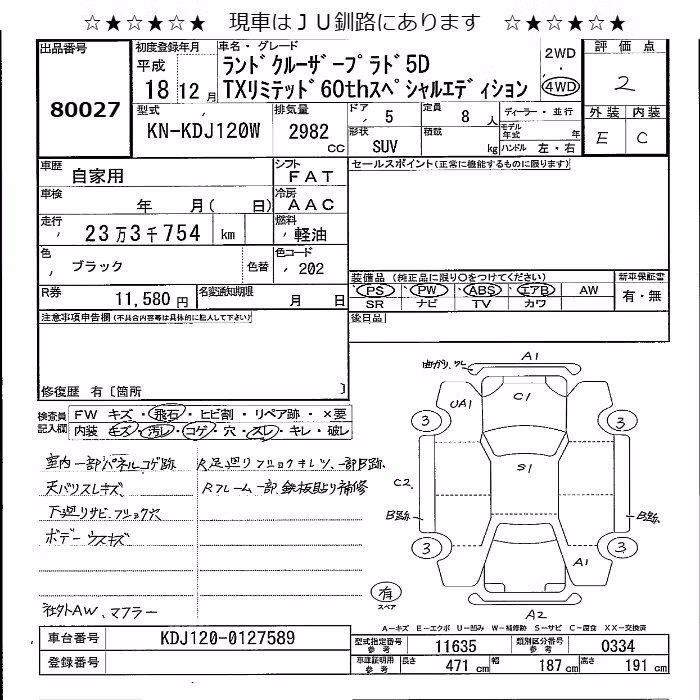 ☆★☆★☆★ 現車はＪＵ釧路にあります ☆★☆★☆★
出品番号
80027
初度登録年月
平成
18 12 月
車名・グレード
ランドクルーザープラド5D
TXリミテッド60thスペシャルエディション
2WD
・
4WD
評価点
2
外装 内装
E C
型式
KN-KDJ120W
排気量
2982 CC
ドア
5
形状
SUV
定員
8 人
積載
kg
ディーラー・並行
モデル年式 年
ハンドル 左・右
車歴
自家用
シフト
FAT
車検
年 月( 日)
冷房
AAC
走行
23万3千754 km
燃料
軽油
色
ブラック
色替
色コード
202
R券
11,580 円
名変通知期限
月 日
セールスポイント(正常に機能するものに限ります)
装備品 (純正品に限り○をつけてください)
新車保証書
PS PW ABS エアB AW
SR ナビ TV カワ
有・無
後日品
注意事項申告欄(不具合内容等は具体的に記入して下さい)
修復歴 有〔箇所 〕
検査員記入欄
FW キズ・飛石・ヒビ割・リペア跡・×要
内装 キズ・汚レ・コゲ・穴・スレ・キレ・破レ
室内一部パネルコゲ跡
天バリスレキズ
下廻リサビ、フリョク穴
ボデーウスキズ
社外AW、マフラー
Rフレーム一部鉄板貼リ補修
A1
UA1
C1
3
3
S1
C2
B跡
B跡
3
3
A1
有
スペア
A2
A−キズ E−エクボ U−凹み W−補修跡 S−サビ C−腐食 XX−交換済
車台番号
KDJ120-0127589
登録番号
型式指定番号 参考
11635
類別区分番号 参考
0334
車庫証明用 参考
長さ 471 cm 幅 187 cm 高さ 191 cm